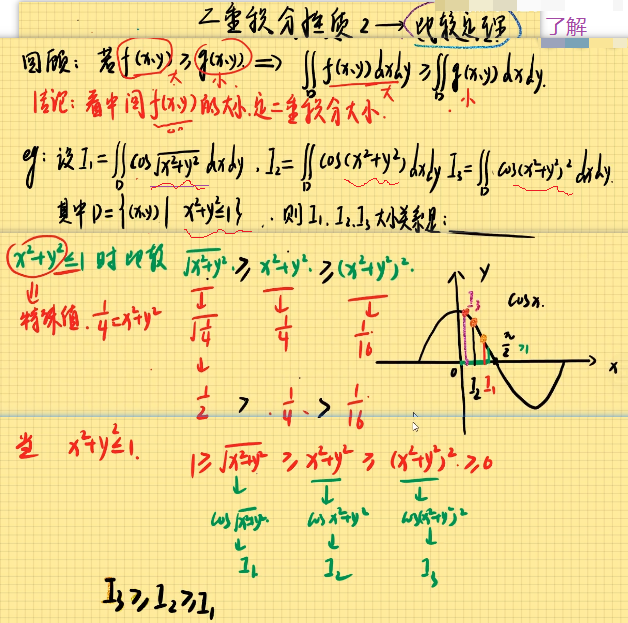 二重积分性质2→比较定理 了解
回顾: 若f(x,y)≥g(x,y) ⇒ ∬_D f(x,y)dxdy ≥ ∬_D g(x,y)dxdy.
大 小 大 小
看中间f(x,y)的大小.定二重积分大小.
eg: 设I₁=∬_D cos√(x²+y²) dxdy, I₂=∬_D cos(x²+y²)dxdy I₃=∬_D cos(x²+y²)²dxdy.
其中D={(x,y)| x²+y²≤1} . 则I₁.I₂.I₃大小关系是:
x²+y²≤1时比较 √(x²+y²) ≥ x²+y² ≥ (x²+y²)².
⇓ ↓ ↓ ↓
特殊值. 1/4=x²+y² √(1/4) 1/4 1/16
↓
1/2 > 1/4 > 1/16
y
I₃ cosx.
π/2 >1
0 I₂ I₁ x
当 x²+y²≤1. 1≥√(x²+y²) ≥ x²+y² ≥ (x²+y²)² ≥0
↓ ↓ ↓
cos√(x²+y²) cos x²+y² cos(x²+y²)²
↓ ↓ ↓
I₁ I₂ I₃
I₃≥I₂≥I₁